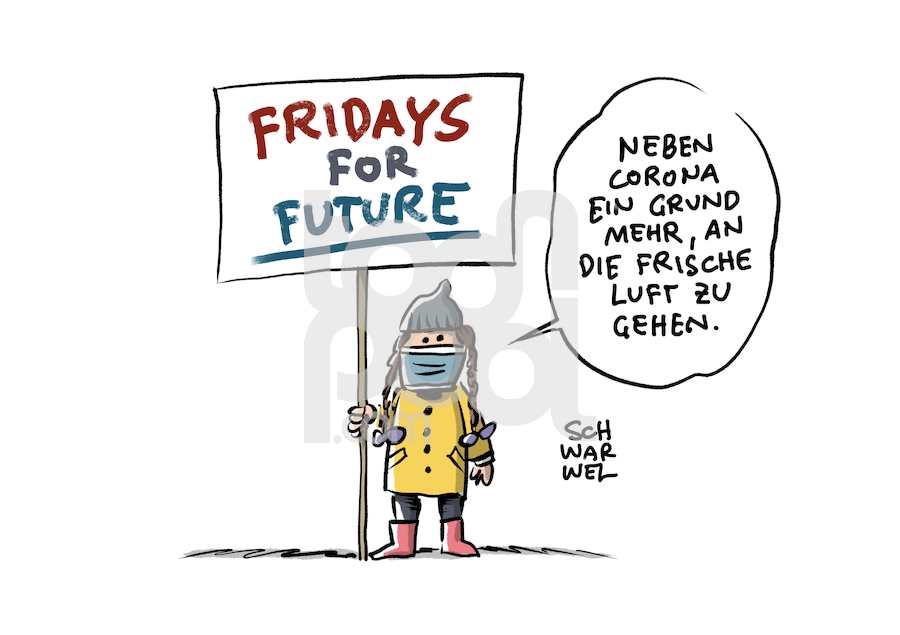 FRIDAYS
FOR
FUTURE
NEBEN
CORONA
EIN GRUND
MEHR, AN
DIE FRISCHE
LUFT ZU
GEHEN.
SCH
WAR
WEL